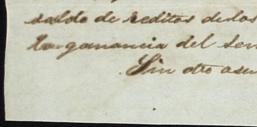 saldo de reditos de los
la ganancia del sen
Sin otro asu